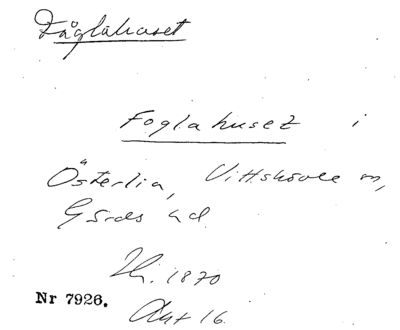 Fåglahuset
Foglahuset i
Österlia, Vittskövle sn,
Gärds hd.
Hi. 1870
Nr 7926.
Akt 16.